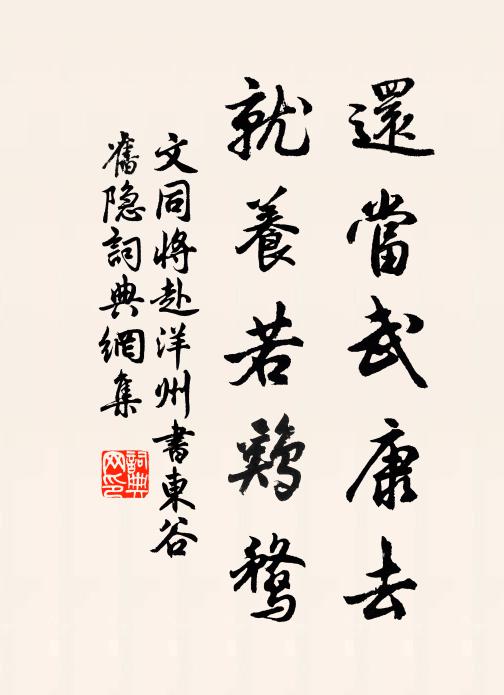 還當武康去
就養若鷄鶩
文同將赴洋州書東谷
舊隐詞典網集
詞典
网印